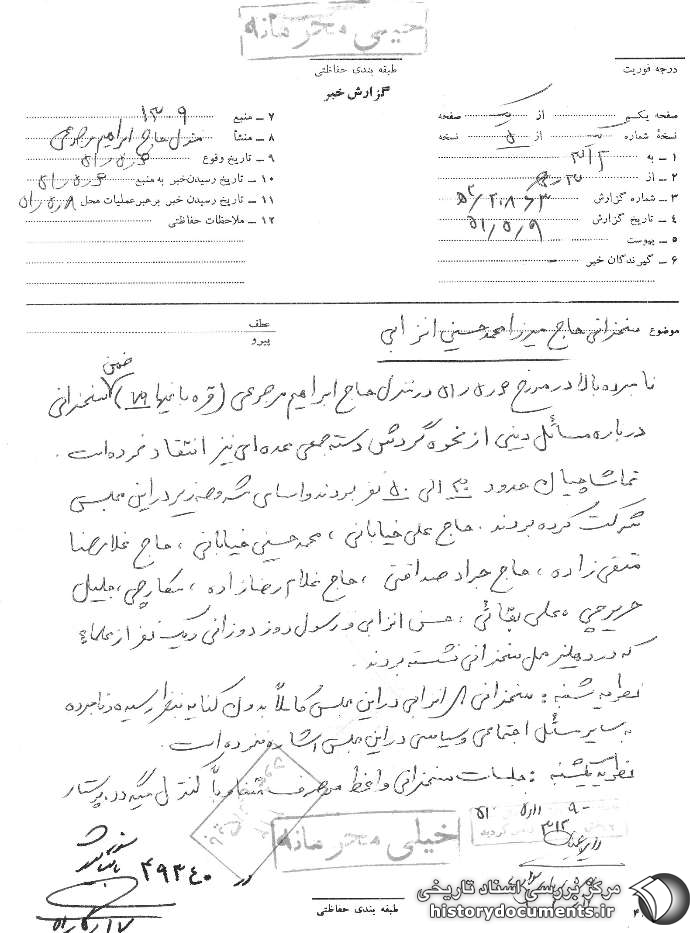 خیلی محرمانه
طبقه بندی حفاظتی
درجه فوریت
گزارش خبر
صفحه یک از یک صفحه
نسخهٔ شماره از ۵ نسخه
۱ ـ به ۳۱۲
۲ ـ از
۳ ـ شماره گزارش
۴ ـ تاریخ گزارش ۵۱/۵/۹
۵ ـ پیوست
۶ ـ گیرندگان خبر
۷ ـ منبع ۱۳۰۹
۸ ـ منشأ منزل حاج ابراهیم مرجوعی
۹ ـ تاریخ وقوع
۱۰ ـ تاریخ رسیدن خبر به منبع
۱۱ ـ تاریخ رسیدن خبر برهبرعملیات محل
۱۲ ـ ملاحظات حفاظتی
موضوع سخنرانی حاج میرزا محمد حسینی انزابی
عطف
پیرو
نامبرده بالا در مورخ در منزل حاج ابراهیم مرجوعی ( ) ضمن سخنرانی
درباره مسائل دینی از نحوه گردش دسته جمعی عده‌ای نیز انتقاد نموده است .
تماشاچیان حدود ۳۰ الی ۵۰ نفر بودند و اسامی مشروحه زیر در این مجلس
شرکت کرده بودند . حاج علی خیابانی ، محمد حسینی خیابانی ، حاج غلامرضا
متقی زاده ، حاج جواد صداقتی ، حاج غلام رضازاده ، جلیل
حریرچی ، علی بقائی ، حسن انزابی و رسول روزدورانی و یک نفر از علماء
که در دهلیز محل سخنرانی نشسته بودند .
نظریه شنبه : سخنرانی در این مجلس کاملاً بدون کنایه بنظر رسیده و نامبرده
به سایر مسائل اجتماعی و سیاسی در این مجلس اشاره ننموده است .
نظریه یکشنبه : جلسات سخنرانی واعظ موصوف متناوباً کنترل میگردد . پرستار
خیلی محرمانه
۴۹۳۴۰
۳۱۲
طبقه بندی حفاظتی
مرکز بررسی اسناد تاریخی
historydocuments.ir